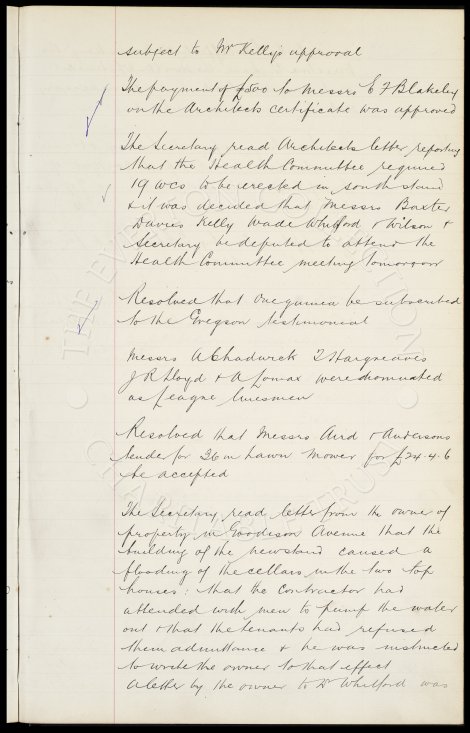 subject to Mr Kelly's approval
The payment of £500 to Messrs E F Blakeley
on the Architects certificate was approved
The Secretary read Architects letter reporting
that the Health Committee required
19 wcs to be erected in south stand
& it was decided that Messrs Baxter
Davies Kelly Wade Whitford & Wilson &
Secretary be deputed to attend the
Health Committee meeting tomorrow
Resolved that one guinea be subscribed
to the Gregson testimonial
Messrs A Chadwick T Hargreaves
J R Lloyd & A Lomax were nominated
as League linesmen
Resolved that Messrs Aird & Andersons
tender for 26 in Lawn Mower for £24-4-6
be accepted
The Secretary read letter from the owner of
property in Goodison Avenue that the
building of the new stand caused a
flooding of the cellars in the two top
houses: that the Contractor had
attended with men to pump the water
out & that the tenants had refused
them admittance & he was instructed
to write the owner to that effect
A letter by the owner to Dr Whitford was
THE EVERTON COLLECTION
CHARITABLE TRUST